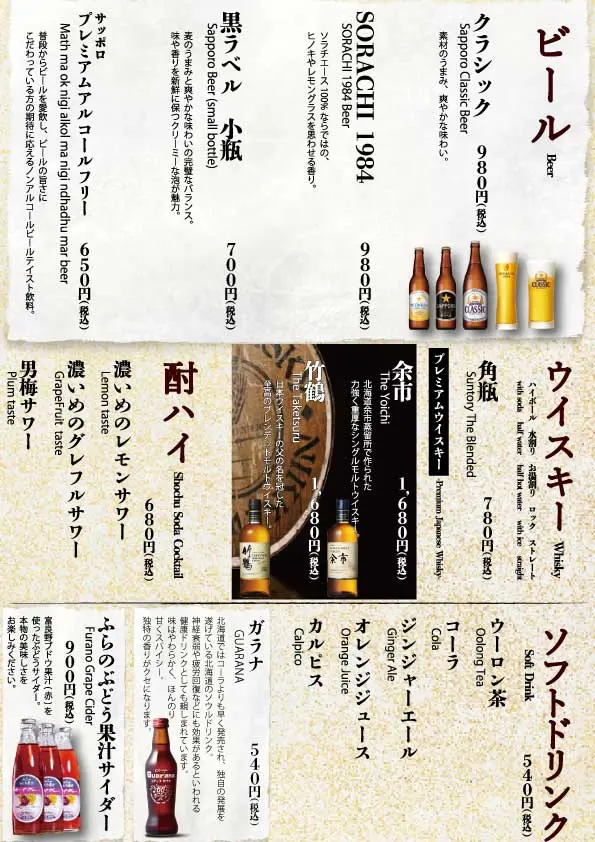 ビール
Beer
クラシック 980円(税込)
Sapporo Classic Beer
素材のうまみ、爽やかな味わい。
SORACHI 1984 980円(税込)
SORACHI 1984 Beer
ソラチエース100%ならではの、
ヒノキやレモングラスを思わせる香り。
黒ラベル 小瓶 700円(税込)
Sapporo Beer (small bottle)
麦のうまみと爽やかな味わいの完璧なバランス。
味や香りを新鮮に保つクリーミーな泡が魅力。
サッポロ
プレミアムアルコールフリー 650円(税込)
Math ma ok nigi alkol ma nigi ndhadhu mar beer
普段からビールを愛飲し、ビールの旨さに
こだわっている方の期待に応えるノンアルコールビールテイスト飲料。
ウイスキー
Whisky
ハイボール 水割り お湯割り ロック ストレート
with soda half water half hot water with ice straight
角瓶 780円(税込)
Suntory The Blended
プレミアムウイスキー
-Premium Japanese Whisky-
余市 1,680円(税込)
The Yoichi
北海道余市蒸留所で作られた
力強く重厚なシングルモルトウイスキー。
竹鶴 1,680円(税込)
The Taketsuru
日本ウイスキーの父の名を冠した
至高のブレンデッドモルトウイスキー。
酎ハイ
Shochu Soda Cocktail
680円(税込)
濃いめのレモンサワー
Lemon taste
濃いめのグレフルサワー
Grapefruit taste
男梅サワー
Plum taste
ソフトドリンク
Soft Drink
540円(税込)
ウーロン茶
Oolong Tea
コーラ
Cola
ジンジャーエール
Ginger Ale
オレンジジュース
Orange Juice
カルピス
Calpico
ガラナ 540円(税込)
GUARANA
北海道ではコーラよりも早く発売され、独自の発展を
遂げている北海道のソウルドリンク。
神経衰弱や疲労回復などにも効果があるといわれる
健康ドリンクとしても親しまれています。
味はやわらかく、ほんのり
甘くスパイシー。
独特の香りがクセになります。
Guarana
ふらのぶどう果汁サイダー
Furano Grape Cider
900円(税込)
富良野ブドウ果汁(赤)を
使ったぶどうサイダー。
本物の美味しさを
お楽しみください。
CLASSIC
SAPPORO
CLASSIC
余市
竹鶴